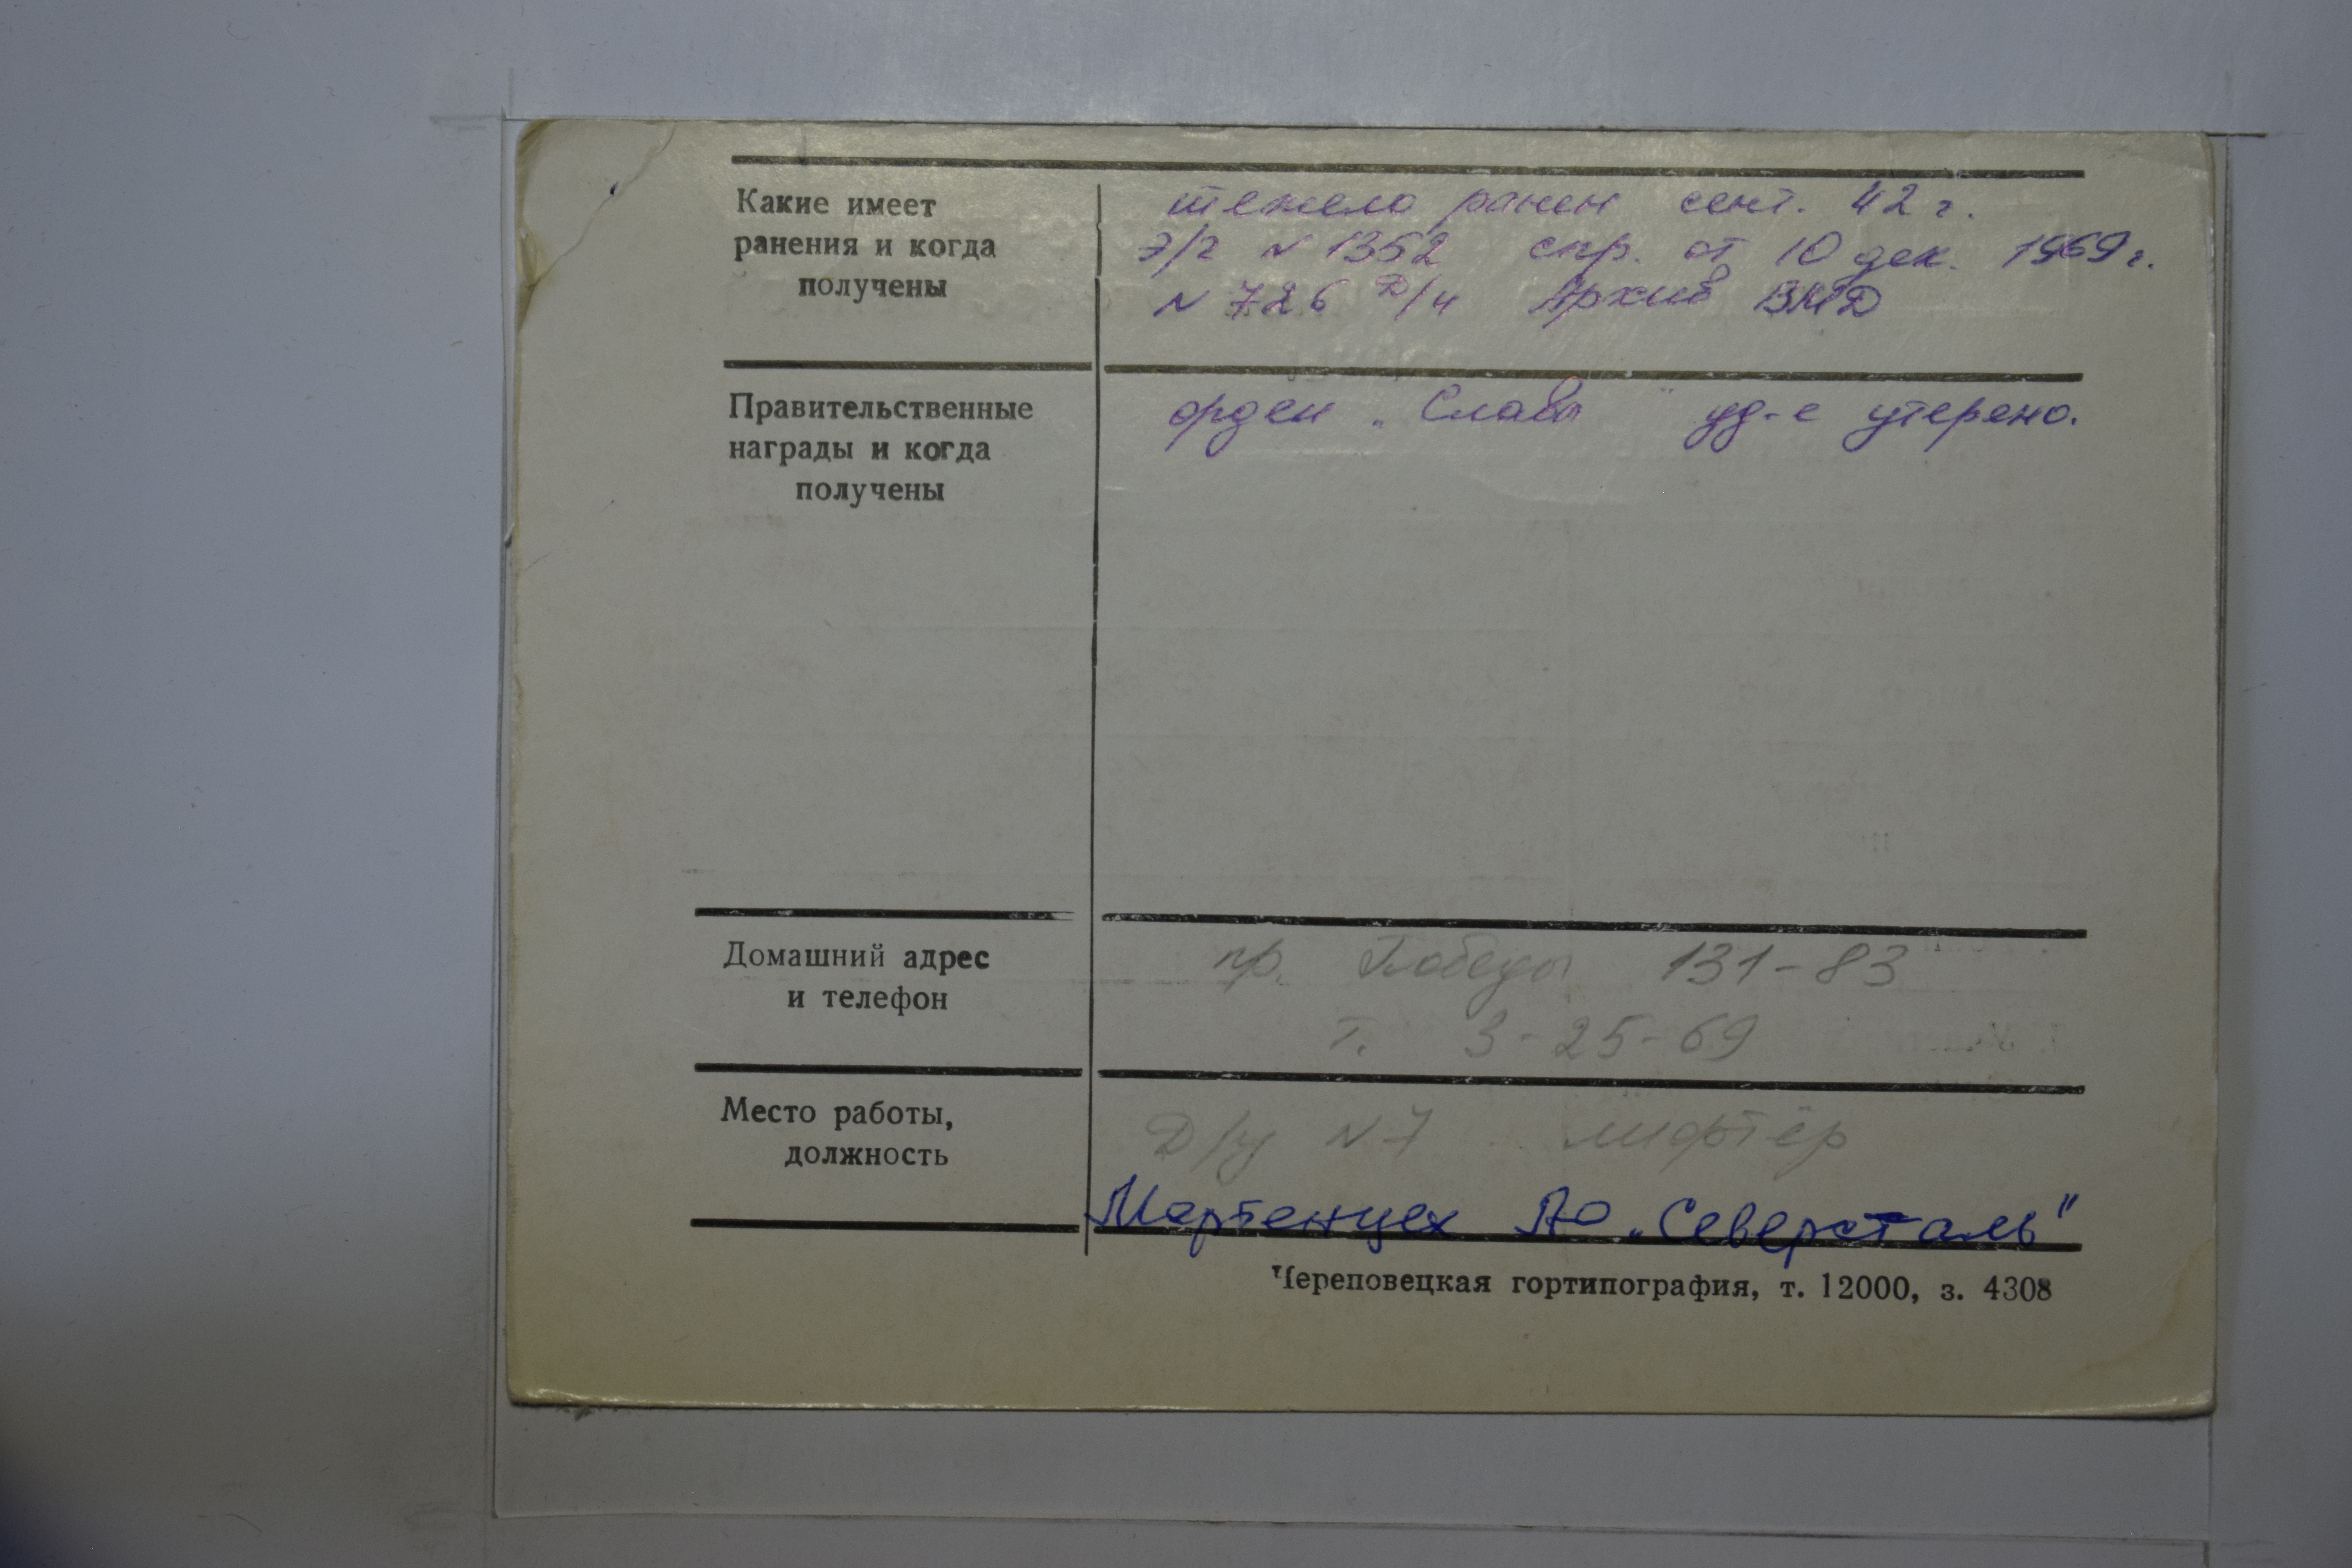 Какие имеет
ранения и когда
получены
тежело ранен сент. 42 г.
э/г N 1352 спр. от 10 дек. 1969 г.
N 726 Архив ВМД
Правительственные
награды и когда
получены
орден „Славы" уд-е утеряно.
Домашний адрес
и телефон
пр. Победы 131-83
т. 3-25-69
Место работы,
должность
Д/у N 7 лифтёр
Мартенцех АО „Северсталь"
Череповецкая гортипография, т. 12000, з. 4308